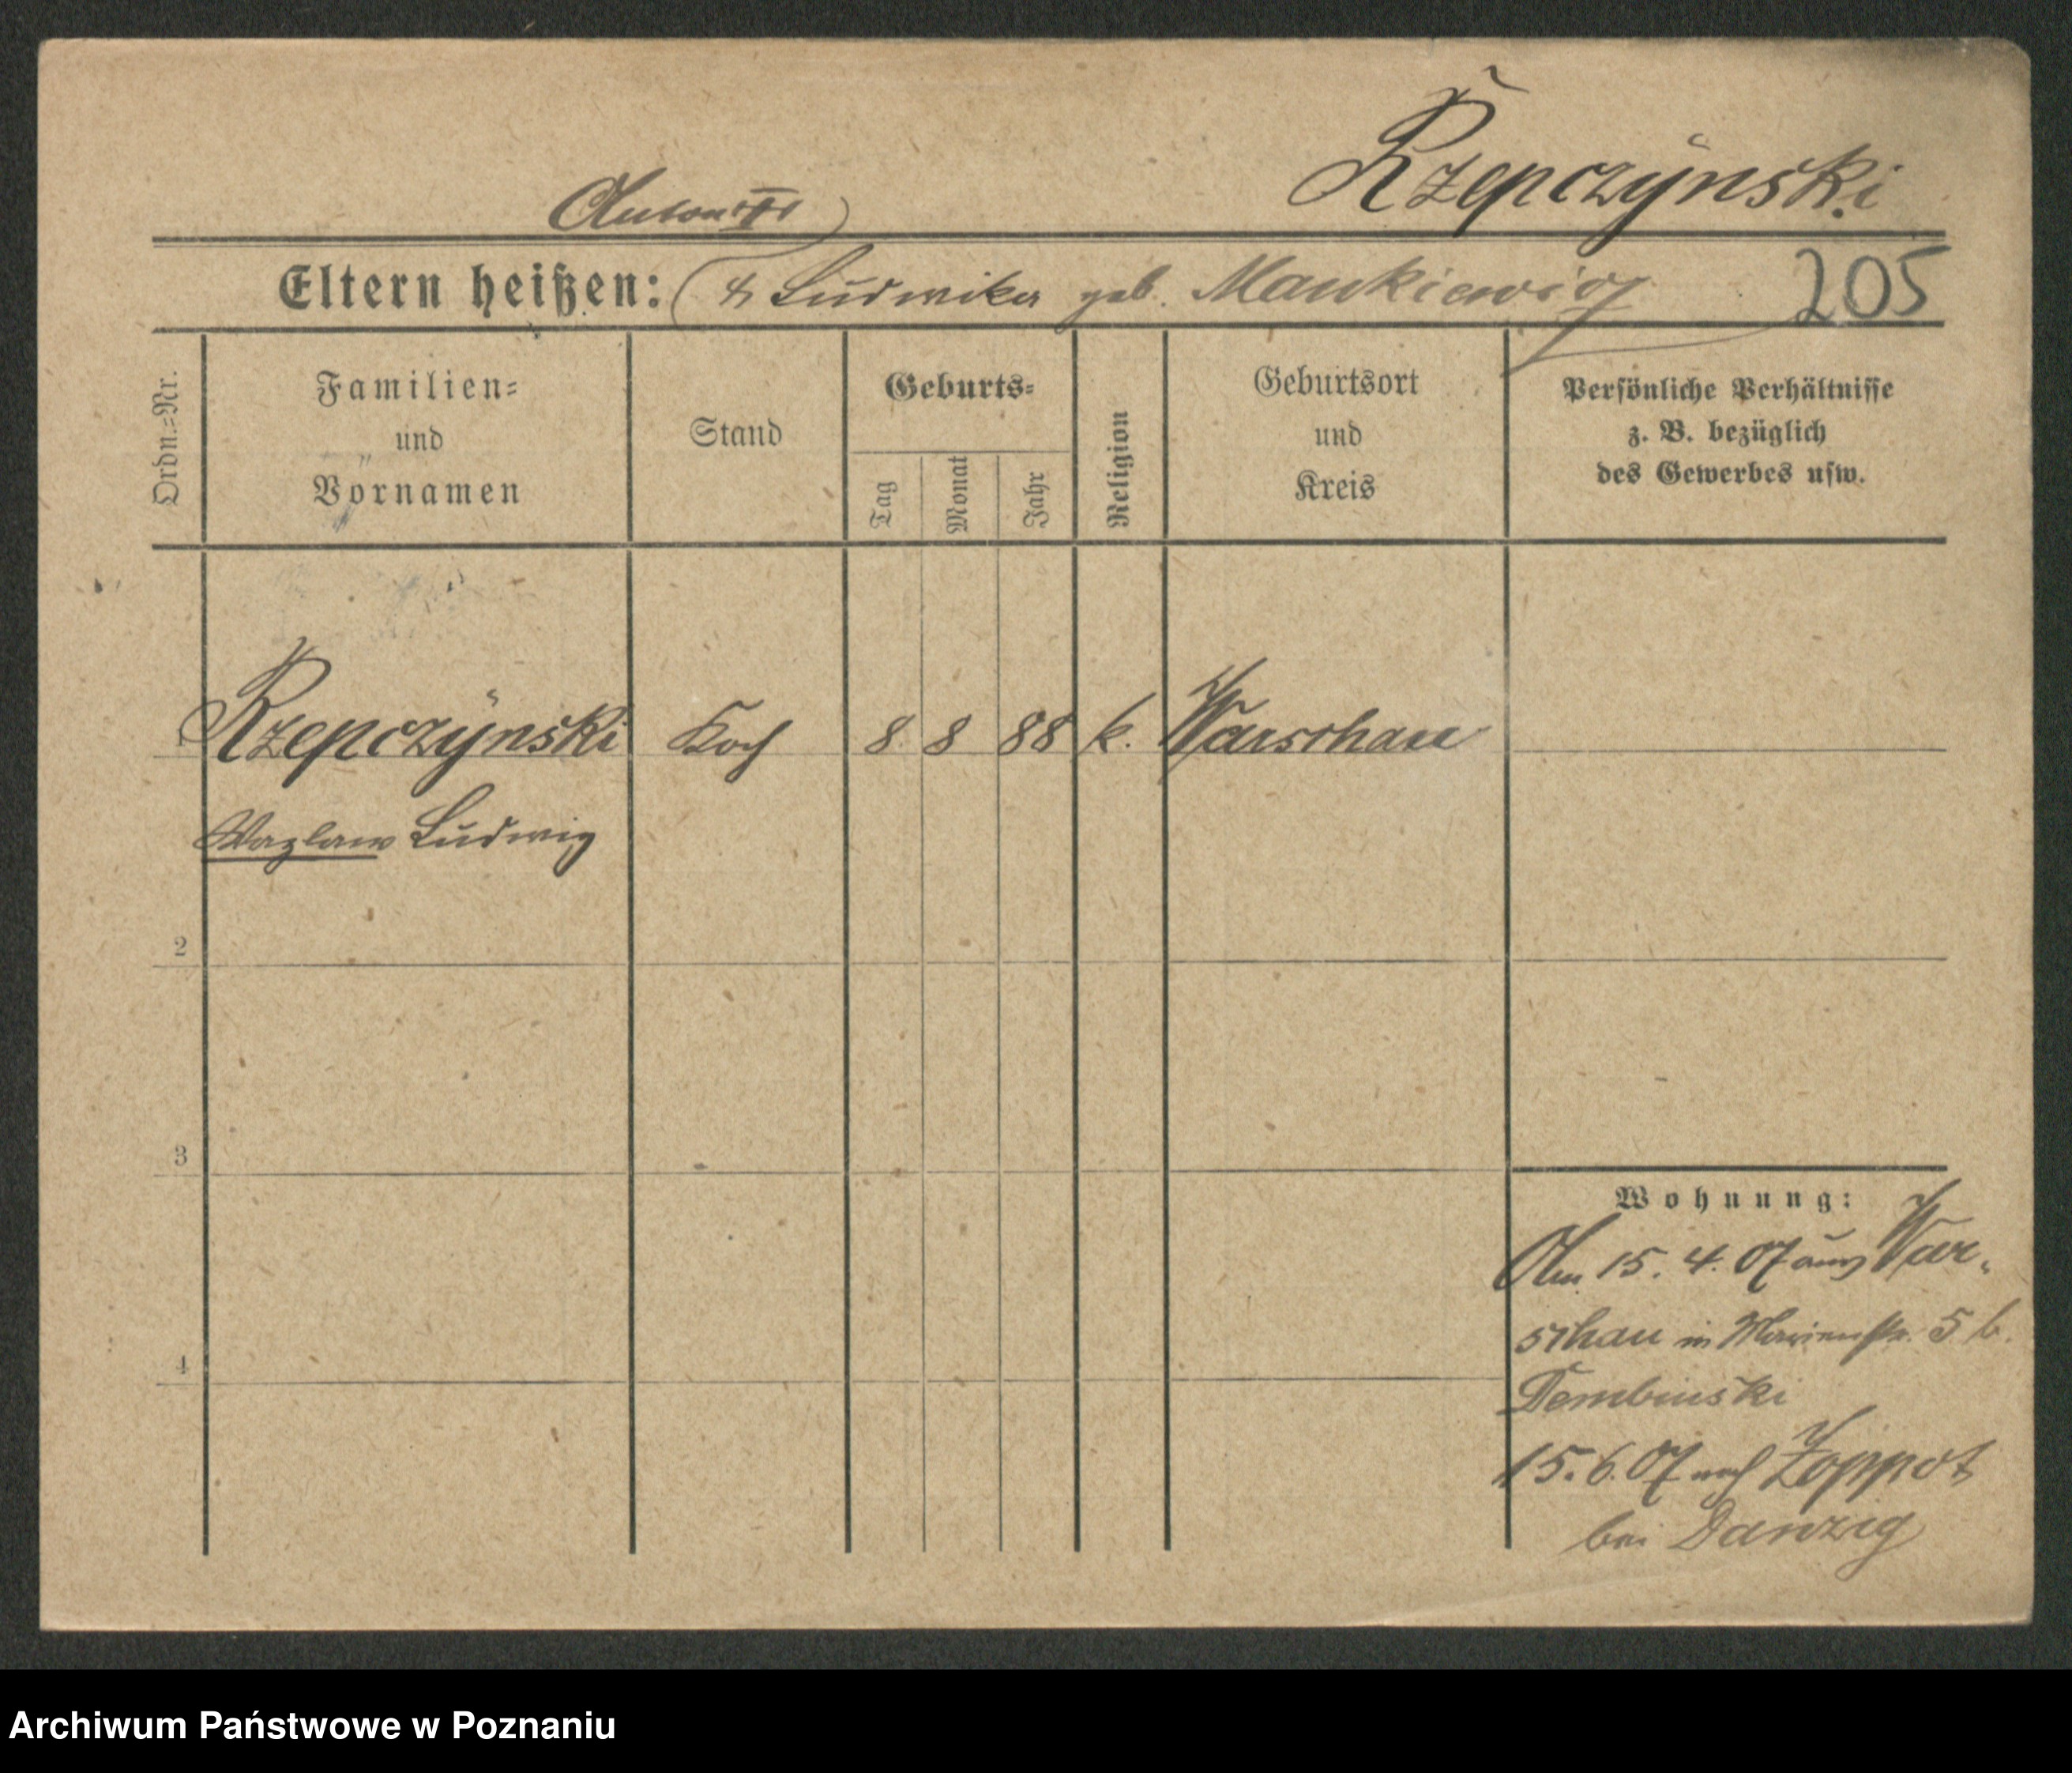 Rzepczynski
Anton
Eltern heißen: & Ludwika geb. Mankiewicz 205
Ordn.=Nr.
Familien=
und
Vornamen
Stand
Geburts=
Tag
Monat
Jahr
Religion
Geburtsort
und
Kreis
Persönliche Verhältnisse
z. B. bezüglich
des Gewerbes usw.
1 Rzepczynski Koch 8 8 88 k. Warschau
Wazlaw Ludwig
2
3
4
Wohnung:
Am 15. 4. 07 aus War-
schau in Marienstr. 5 b.
Dembinski
15. 6. 07 nach Zoppot
bei Danzig
Archiwum Państwowe w Poznaniu